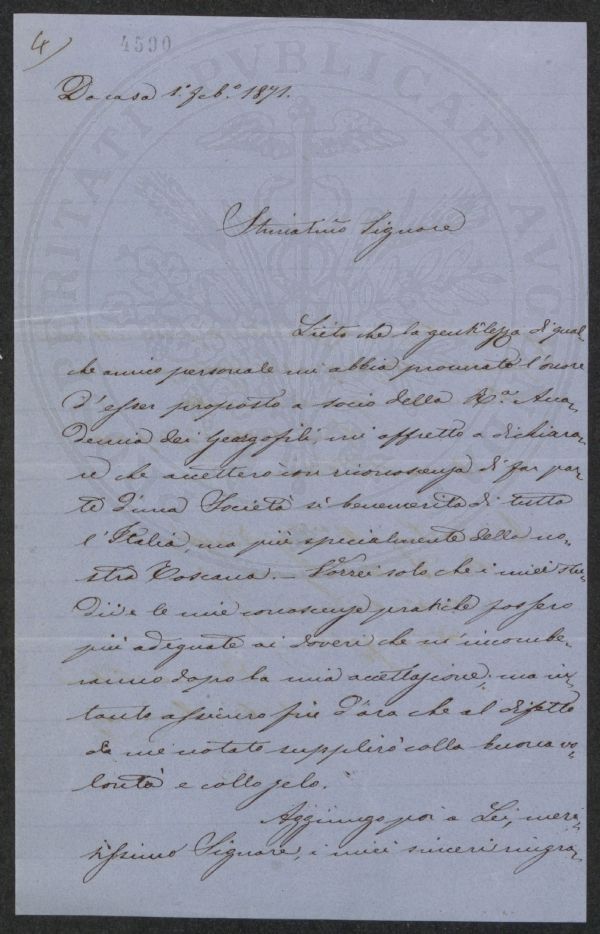 4
4590
Da casa 1° Feb.° 1871.
Stimatiss̃o Signore
Lieto che la gentilezza di qual-
che amico personale mi abbia procurato l'onore
d'esser proposto a socio della R.ª Acca-
demia dei Georgofili, mi affretto a dichiara-
re che accetterò con riconoscenza di far par-
te d'una Società sì benemerita di tutta
l'Italia, ma più specialmente della no-
stra Toscana. — Vorrei solo che i miei stu-
dii e le mie conoscenze pratiche fossero
più adeguate ai doveri che m'incombe-
ranno dopo la mia accettazione; ma in-
tanto assicuro fin d'ora che al difetto
da me notato supplirò colla buona vo-
lontà e collo zelo.
Aggiungo poi a Lei, meri-
tissimo Signore, i miei sinceri ringra-
PROSPERITATI PUBLICAE AUG